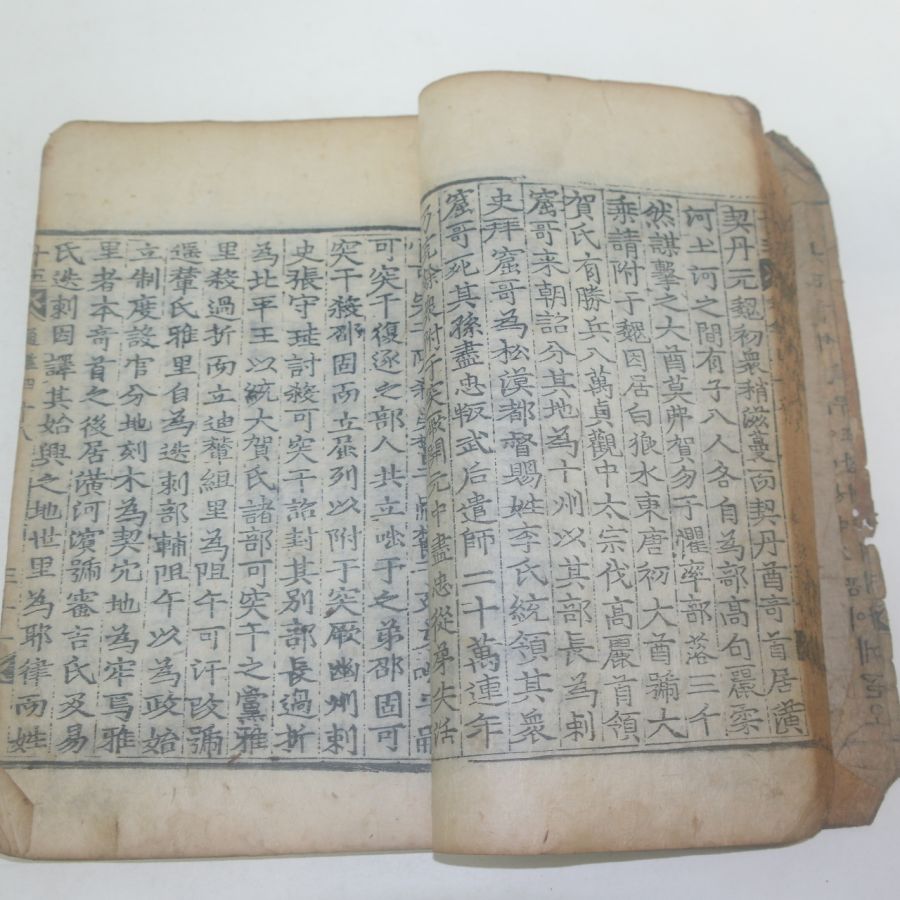 契丹元魏初衆稍滋蔓而契丹酋奇首居潢
河土河之間有子八人各自為部高句麗柔
然謀擊之大酋莫弗賀勿于懼率部落三千
乘請附于魏因居白狼水東唐初大酋號大
賀氏有勝兵八萬貞觀中太宗伐高麗首領
窟哥来朝詔分其地為十州以其部長為刺
史拜窟哥為松漠都督賜姓李氏統領其衆
窟哥死其孫盡忠叛武后遣師二十萬連年
附于突厥開元中盡忠從弟失活
可突干復逐之部人共立咄于之弟邵固可
突干殺邵固而立屈列以附于突厥幽州刺
史張守珪討殺可突干詔封其别部長過折
為北平王以統大賀氏諸部可突干之黨雅
里殺過折而立迪輦組里為阻午可汗改號
遥輦氏雅里自為迭刺部輔阻午以為政始
立制度設官分地刻木為契穴地為牢焉雅
里者本奇首之後居潢河濱號審吉氏及易
氏迭刺因譯其始興之地世里為耶律而姓